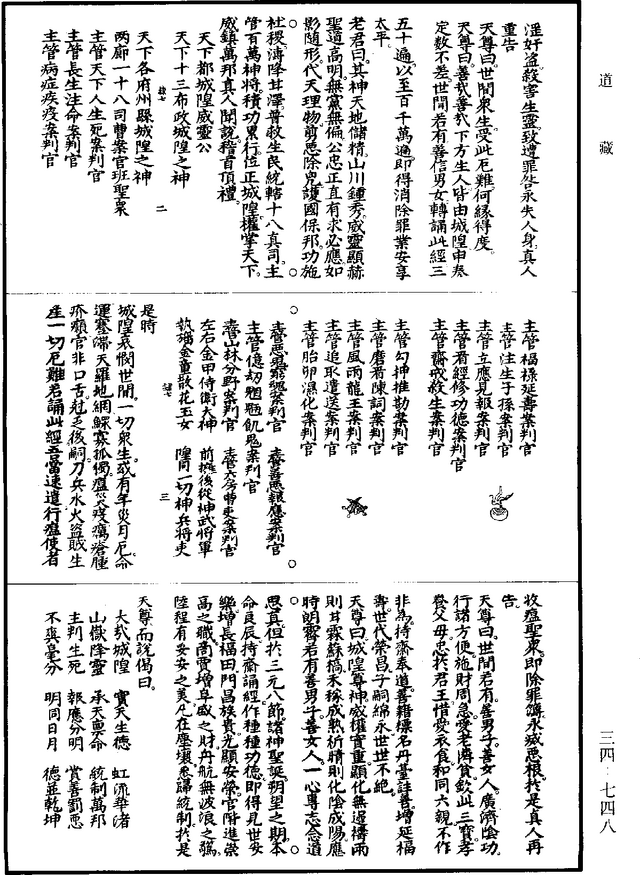 道藏
淫奸盜殺害生靈致遭罪咎永失人身真人
重告
天尊曰世間衆生受此厄難何緣得度
天尊曰善哉善哉下方生人皆由城隍申奏
定數不差世間若有善信男女轉誦此經三
五十遍以至百千萬遍即得消除罪業安享
太平
老君曰其神天地儲精山川鍾秀威靈顯赫
聖道高明無黨無偏公忠正直有求必應如
影隨形代天理物剪惡除兇護國保邦功施
社稷溥降甘澤普救生民統轄十八真司主
管百萬神將積功累行位正城隍權掌天下
威鎮萬邦真人聞說稽首頂禮
天下都城隍威靈公
天下十三布政城隍之神
二
天下各府州縣城隍之神
兩廊一十八司曹案官班聖衆
主管天下人生死案判官
主管長生注命案判官
主管病症疾疫案判官
主管福祿延壽案判官
主管注生子孫案判官
主管立應見報案判官
主管看經修功德案判官
主管齋戒救生案判官
主管勾押推勘案判官
主管磨看陳詞案判官
主管風雨龍王案判官
主管追取遣送案判官
主管胎卵濕化案判官
主管善惡報應案判官
主管山林分野案判官
主管六房曹吏案判官
左右金甲侍衛大神
前擁後從神武將軍
執旛金童散花玉女
隍司一切神兵將吏
三
是時
城隍哀憫世間一切衆生或有年災月厄命
運蹇滯天羅地網鰥寡孤獨瘟災疫癘瘡腫
疥癩官非口舌尅乏後嗣刀兵水火盜賊生
產一切厄難若誦此經吾當速遣行瘟使者
收瘟聖衆即除罪簿永滅惡根於是真人再
告
天尊曰世間若有善男子善女人廣濟陰功
行諸方便施財周急愛老隣貧欽此三寶孝
養父母忠於君王惜愛衣食和同六親不作
非爲持齋奉道善籍標名丹臺註善增延福
壽世代榮昌子嗣綿永世世不絕
天尊曰城隍尊神威權實重顯化無邊禱雨
則甘霖蘇槁禾稼成熟祈晴則化陰成陽應
時朗霽若有善男子善女人一心專志念道
思真但於三元八節諸神聖誕朔望之期本
命良辰持齋誦經作種種功德即得見世安
樂增長福田門昌族貴光顯安榮官附進崇
高之職商賈增阜盛之財舟航無波浪之驚
陸程有安妥之美凡在塵寰悉歸統制於是
天尊而說偈曰
大哉城隍 實天生德 虹流華渚
山嶽降靈 承天稟命 統制萬邦
主判生死 報應分明 賞善罰惡
不爽毫分 明同日月 德並乾坤
三四·七四八